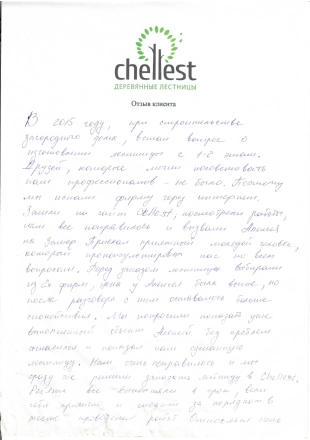 chellest
ДЕРЕВЯННЫЕ ЛЕСТНИЦЫ
Отзыв клиента
В 2015 году, при строительстве
загородного дома, встал вопрос о
изготовлении лестницы с 1-2 этаж.
Друзей, которые могли посоветовать
нам профессионалов - не было. Поэтому
мы искали фирму через интернет.
Зашли на сайт посмотрели работы,
нам все понравилось и вызвали
на замер Приехал приятный молодой человек,
который проконсультировал нас по всем
вопросам. Перед заказом лестницу выбирали
из 2х фирм, цена у была выше, но
после разговора с ним
Мы попросили показать уже
выполненный объект без проблем
и показал нам сделанную
лестницу. Нам понравилось и мы
сразу же решили заказать лестницу в Chellest.
все в срок,
и следить за порядком в
работ